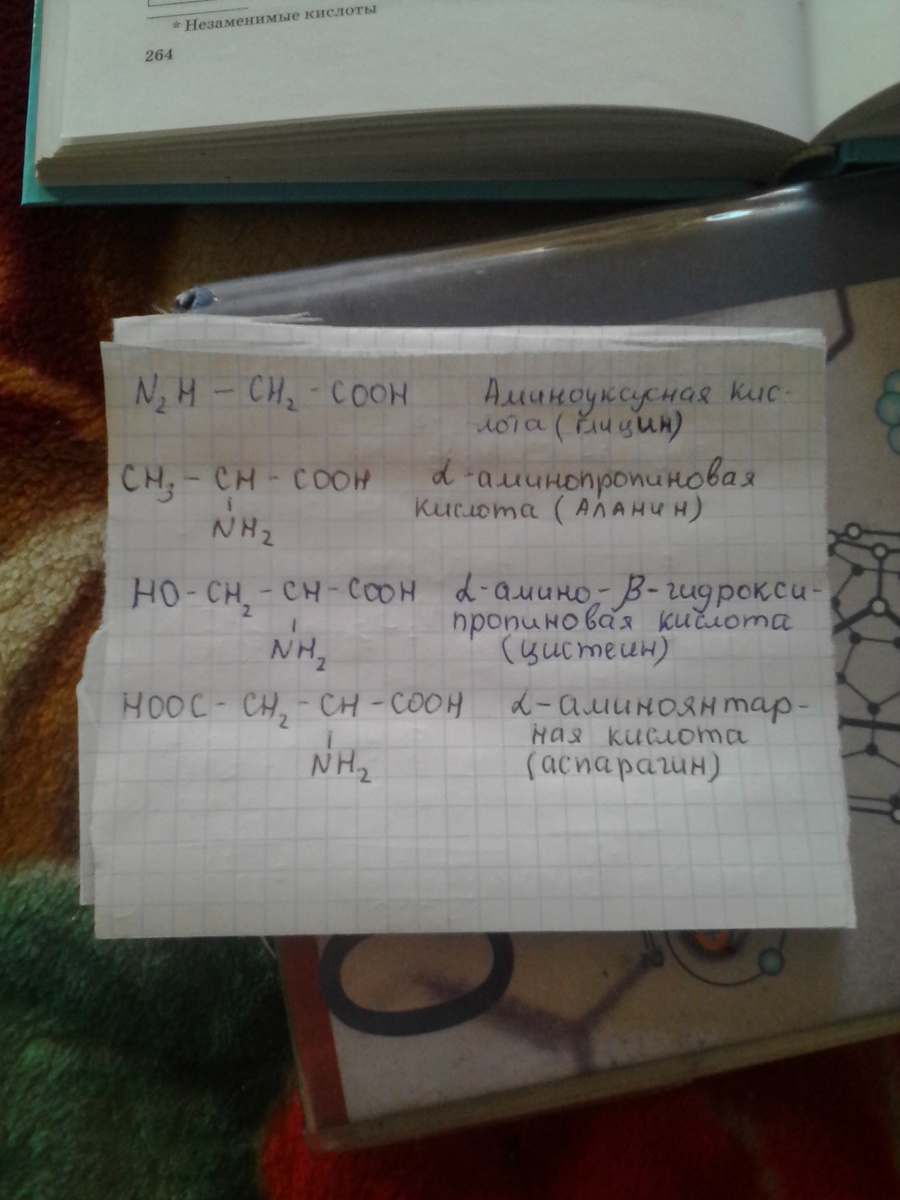 * Незаменимые кислоты
264
N₂H – CH₂ - COOH Аминоуксусная кис-
лота (глицин)
CH₃ – CH – COOH α-аминопропиновая
NH₂ кислота (Аланин)
HO - CH₂ - CH - COOH α-амино-β-гидрокси-
NH₂ пропиновая кислота
(цистеин)
HOOC - CH₂ - CH - COOH α-аминоянтар-
ная кислота
NH₂ (аспарагин)